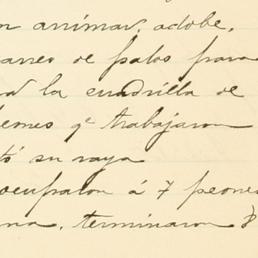 n animar, adobe,
arreo de palos para
la cuadrilla de
lemes qe trabajaron
tó su raya
ocuparon á 7 peones
na, terminaron